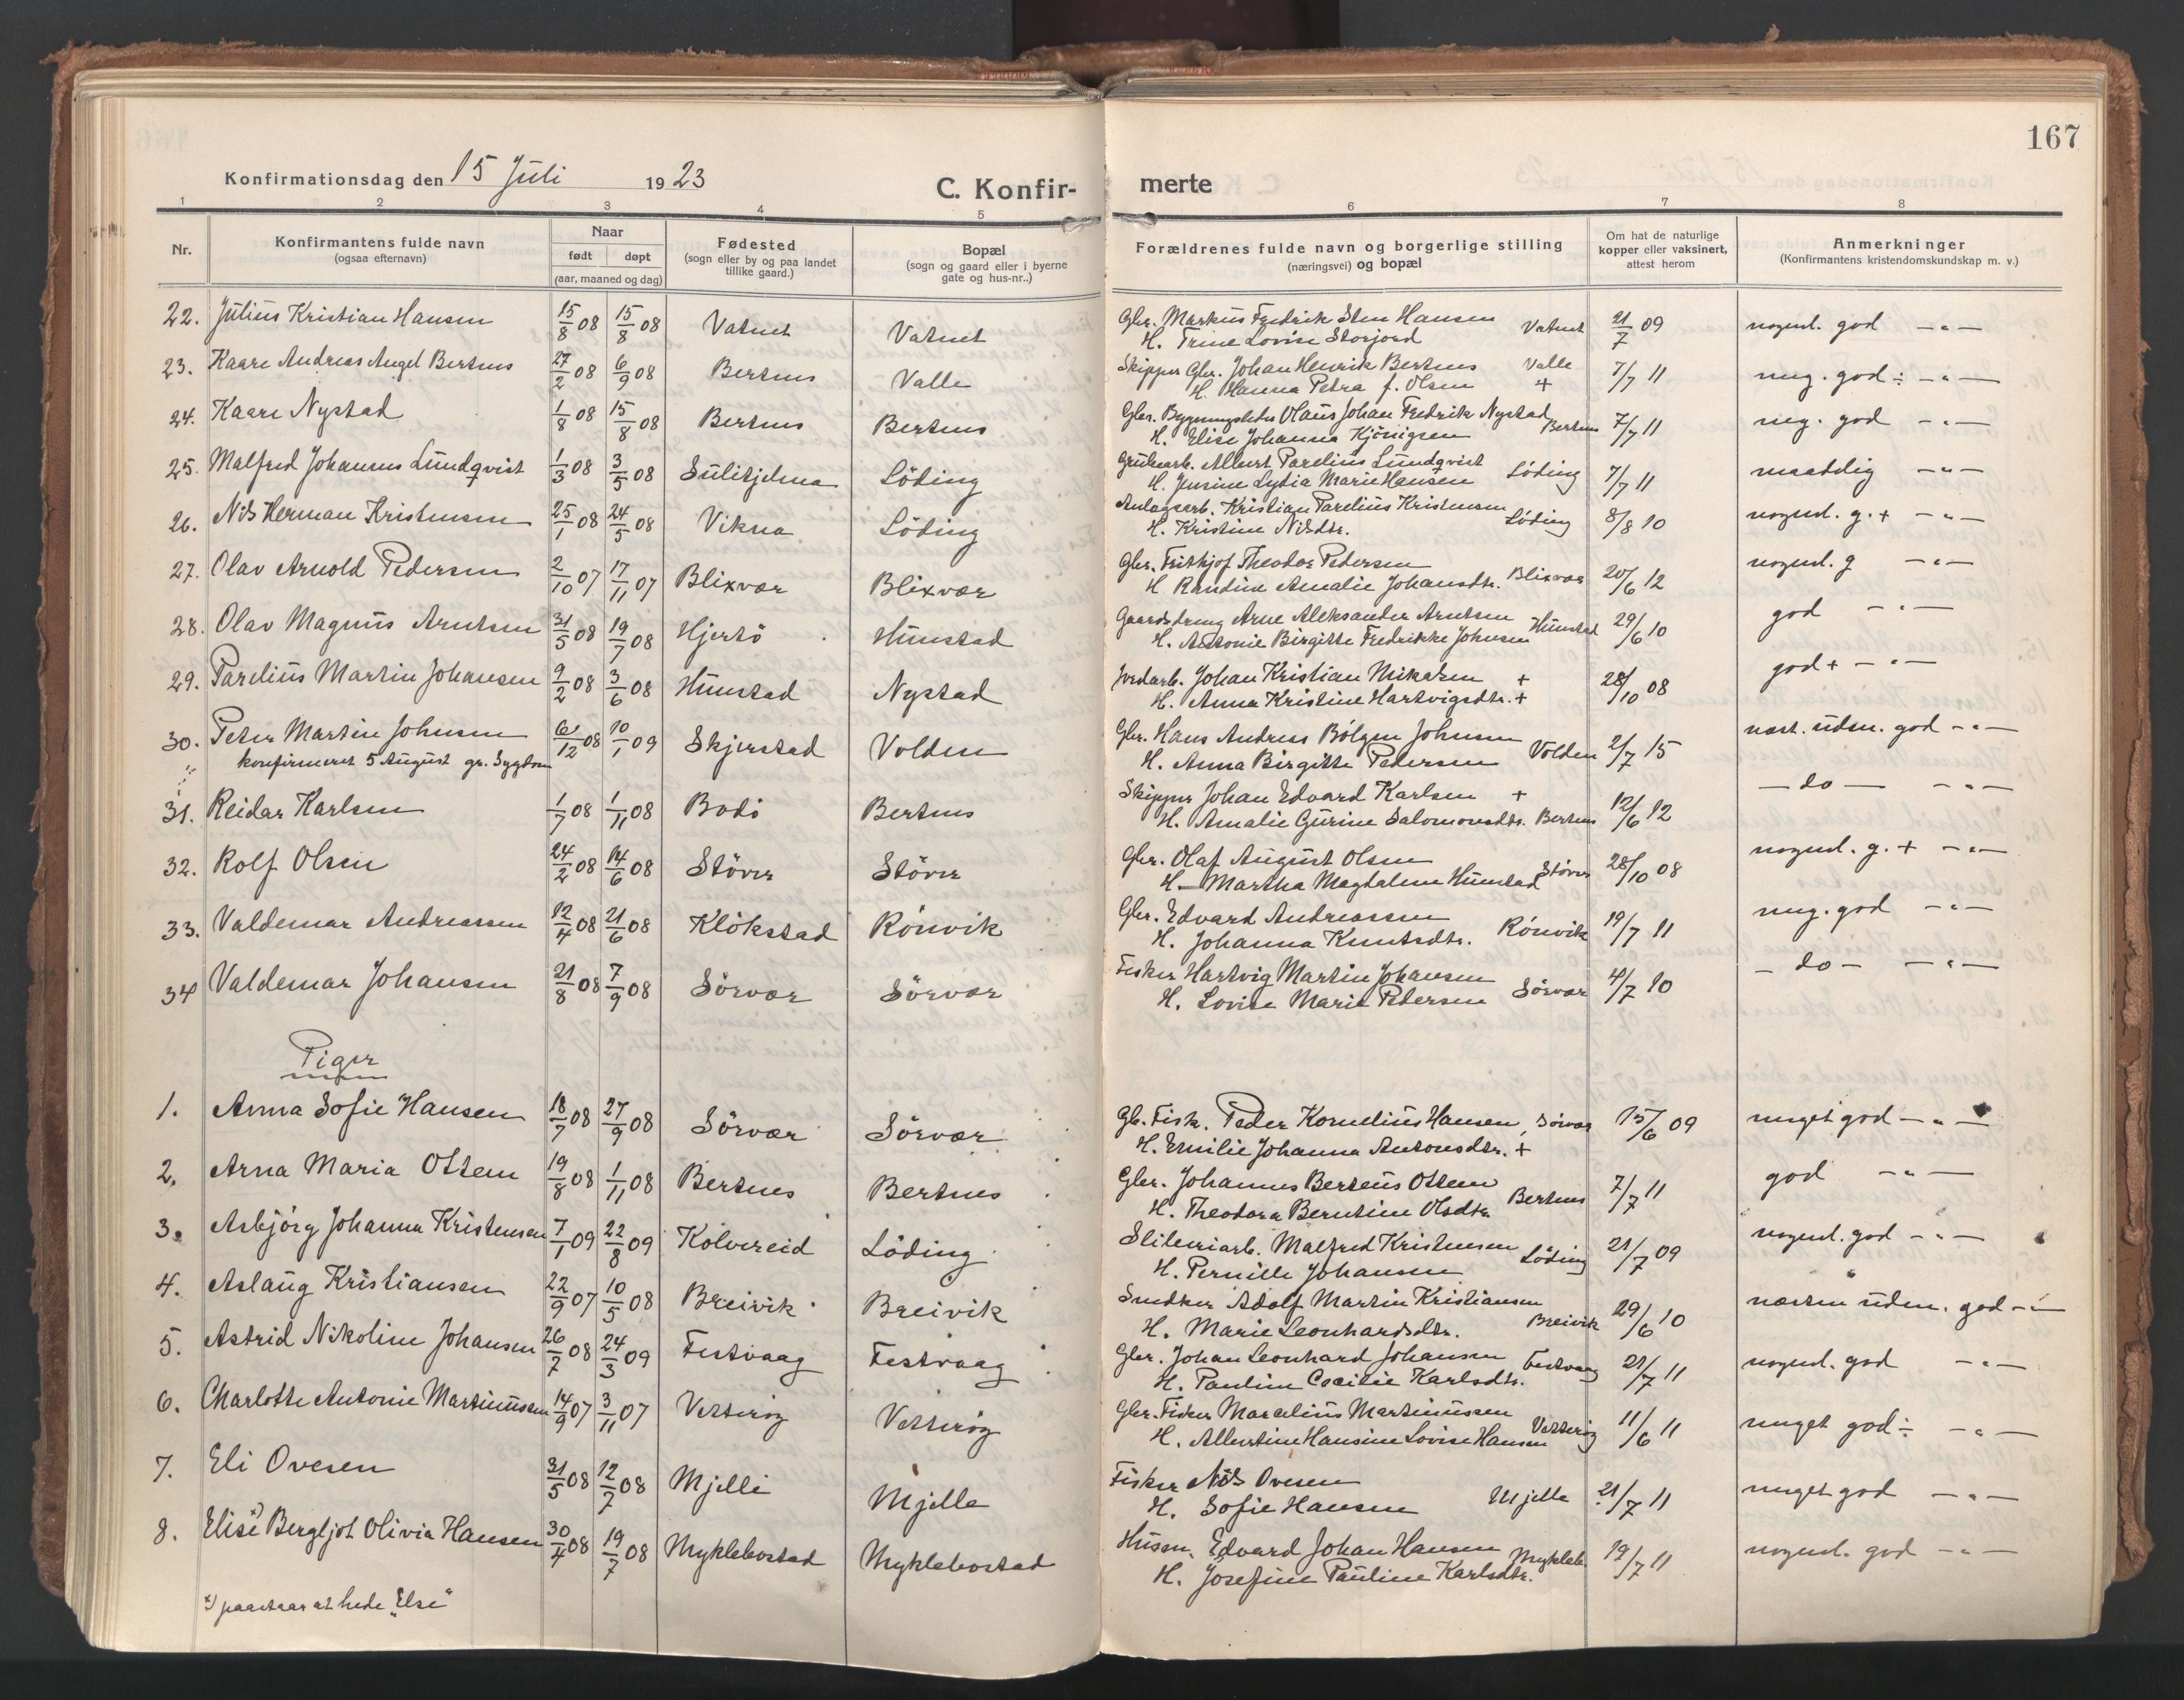 167
Konfirmationsdag den 15 Juli 1923
C. Konfirmerte
1 2 3 4 5 6 7 8
Nr.
Konfirmantens fulde navn
(ogsaa efternavn)
Naar
født døpt
(aar, maaned og dag)
Fødested
(sogn eller by og paa landet
tillike gaard.)
Bopæl
(sogn og gaard eller i byerne
gate og hus-nr..)
Forældrenes fulde navn og borgerlige stilling
(næringsvei) og bopæl
Om hat de naturlige
kopper eller vaksinert,
attest herom
Anmerkninger
(Konfirmantens kristendomskundskap m. v.)
22. Julius Kristian Hansen 15/8 08 15/8 08 Vatnet Vatnet Gbr. Markus Fredrik Sten Hansen Vatnet 21/7 09 nogenl. god -"-
H. Trine Lovise Storjord
23. Kaare Andreas Angel Bertnes 27/2 08 6/9 08 Bertnes Valle Skipper Gbr. Johan Henrik Bertnes Valle 7/7 11 meg. god ÷ -"-
H. Hanna Petra f. Olsen +
24. Kaare Nystad 1/8 08 15/8 08 Bertnes Bertnes Gbr. Bygningsleder Olaus Johan Fredrik Nystad Bertnes 7/7 11 meg. god -"-
H. Elise Johanna Kjönigsen
25. Malfred Johannes Lundqvist 1/3 08 3/5 08 Sulitjelma Löding Grubearb. Albert Parelius Lundqvist Löding 7/7 11 maadelig -"-
H. Jensine Lydia Marie Hansen
26. Nils Herman Kristensen 25/1 08 24/5 08 Vikna Löding Anlægsarb. Kristian Parelius Kristensen Löding 8/8 10 nogenl. g. + -"-
H. Kristine Nilsdtr.
27. Olav Arnold Pedersen 2/10 07 17/11 07 Blixvær Blixvær Gbr. Fritkjof Theodor Pedersen Blixvær 20/6 12 nogenl. g -"-
H. Randine Amalie Johansdtr.
28. Olav Magnus Arntsen 31/5 08 19/7 08 Hjertö Hunstad Gaardsdreng Arne Aleksander Arntsen Hunstad 29/6 10 god -"-
H. Antonie Birgitte Fredrikke Johnsen
29. Parelius Martin Johansen 9/2 08 3/6 08 Hunstad Nystad Jordarb. Johan Kristian Mikalsen + 28/10 08 god + -"-
H. Anna Kristine Hartvigsdtr. +
30. Peter Martin Johnsen 6/12 08 10/1 09 Skjerstad Volden Gbr. Hans Andreas Bölgen Johnsen Volden 2/7 15 næst. uden. god -"-
konfirmeret 5 August gr. Sygdom H. Anna Birgitte Pedersen
31. Reidar Karlsen 1/7 08 1/11 08 Bodö Bertnes Skipper Johan Edvard Karlsen + 12/6 12 - do - -"-
H. Amalie Gurine Salomonsdtr. Bertnes
32. Rolf Olsen 24/2 08 14/6 08 Stöver Stöver Gbr. Olaf August Olsen Stöver 28/10 08 nogenl. g. + -"-
H. Martha Magdalene Hunstad
33. Valdemar Andreassen 12/4 08 21/6 08 Klökstad Rönvik Gbr. Edvard Andreassen Rönvik 19/7 11 meg. god -"-
H. Johanna Knutsdtr.
34 Valdemar Johansen 21/8 08 7/9 08 Sörvær Sörvær Fisker Hartvig Martin Johansen Sörvær 4/7 10 - do - -"-
H. Lovise Marie Pedersen
Piger
1. Anna Sofie Hansen 18/7 08 27/9 08 Sörvær Sörvær Gb. Fisk. Peder Kornelius Hansen, Sörvær 15/6 09 meget god -"-
H. Emilie Johanna Antonsdtr. +
2. Arna Maria Ottem 19/8 08 1/11 08 Bertnes Bertnes Gbr. Johannes Berteus Ottem Bertnes 7/7 11 god -"-
H. Theodora Berntine Olsdtr
3. Asbjörg Johanna Kristensen 7/1 09 22/8 09 Kolvereid Löding Sliberiarb. Malfred Kristensen Löding 21/7 09 nogenl. god -"-
H. Pernille Johansen
4. Aslaug Kristiansen 22/9 07 10/5 08 Breivik Breivik Snedker Adolf Martin Kristiansen Breivik 29/6 10 næsten uden. god -"-
H. Marie Leonhardsdtr.
5. Astrid Nikoline Johansen 26/7 08 24/3 09 Festvaag Festvaag Gbr. Johan Leonhard Johansen Festvaag 21/7 11 nogenl. god -"-
H. Pauline Cecilie Karlsdtr.
6. Charlotte Antonie Martinussen 14/9 07 3/11 07 Vetteröy Vetteröy Gbr. Fisker Marcelius Martinussen Vetteröy 11/6 11 meget god ÷ -"-
H. Albertine Hansine Lovise Hansen
7. Eli Ovesen 31/5 08 12/7 08 Mjelle Mjelle Fisker Nils Ovesen Mjelle 21/7 11 meget god -"-
H. Sofie Hansen
8. Elise x) Bergljot Olivia Hansen 30/4 08 19/7 08 Myklebostad Myklebostad Husm. Edvard Johan Hansen Mykleb. 19/7 11 nogenl. god -"-
H. Josefine Pauline Karlsdtr.
x) paastaar at hede "Else"